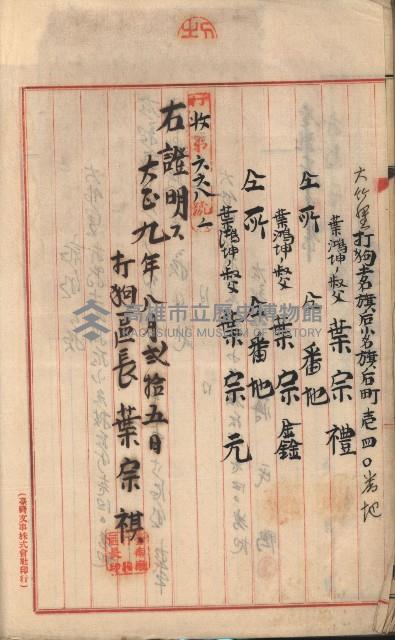 大竹里打狗土名旗后小名旗后町壱四〇番地
葉鴻坤ノ叔父 葉宗禮
仝所 仝番地
葉鴻坤ノ叔父 葉宗鏞
仝所 仝番地
葉鴻坤ノ叔父 葉宗元
打收第六六八號ノ一
右證明ス
大正九年八月弐拾五日
打狗區長 葉宗祺
高雄市立歷史博物館
KAOHSIUNG MUSEUM OF HISTORY
(臺灣文事株式會社印行)